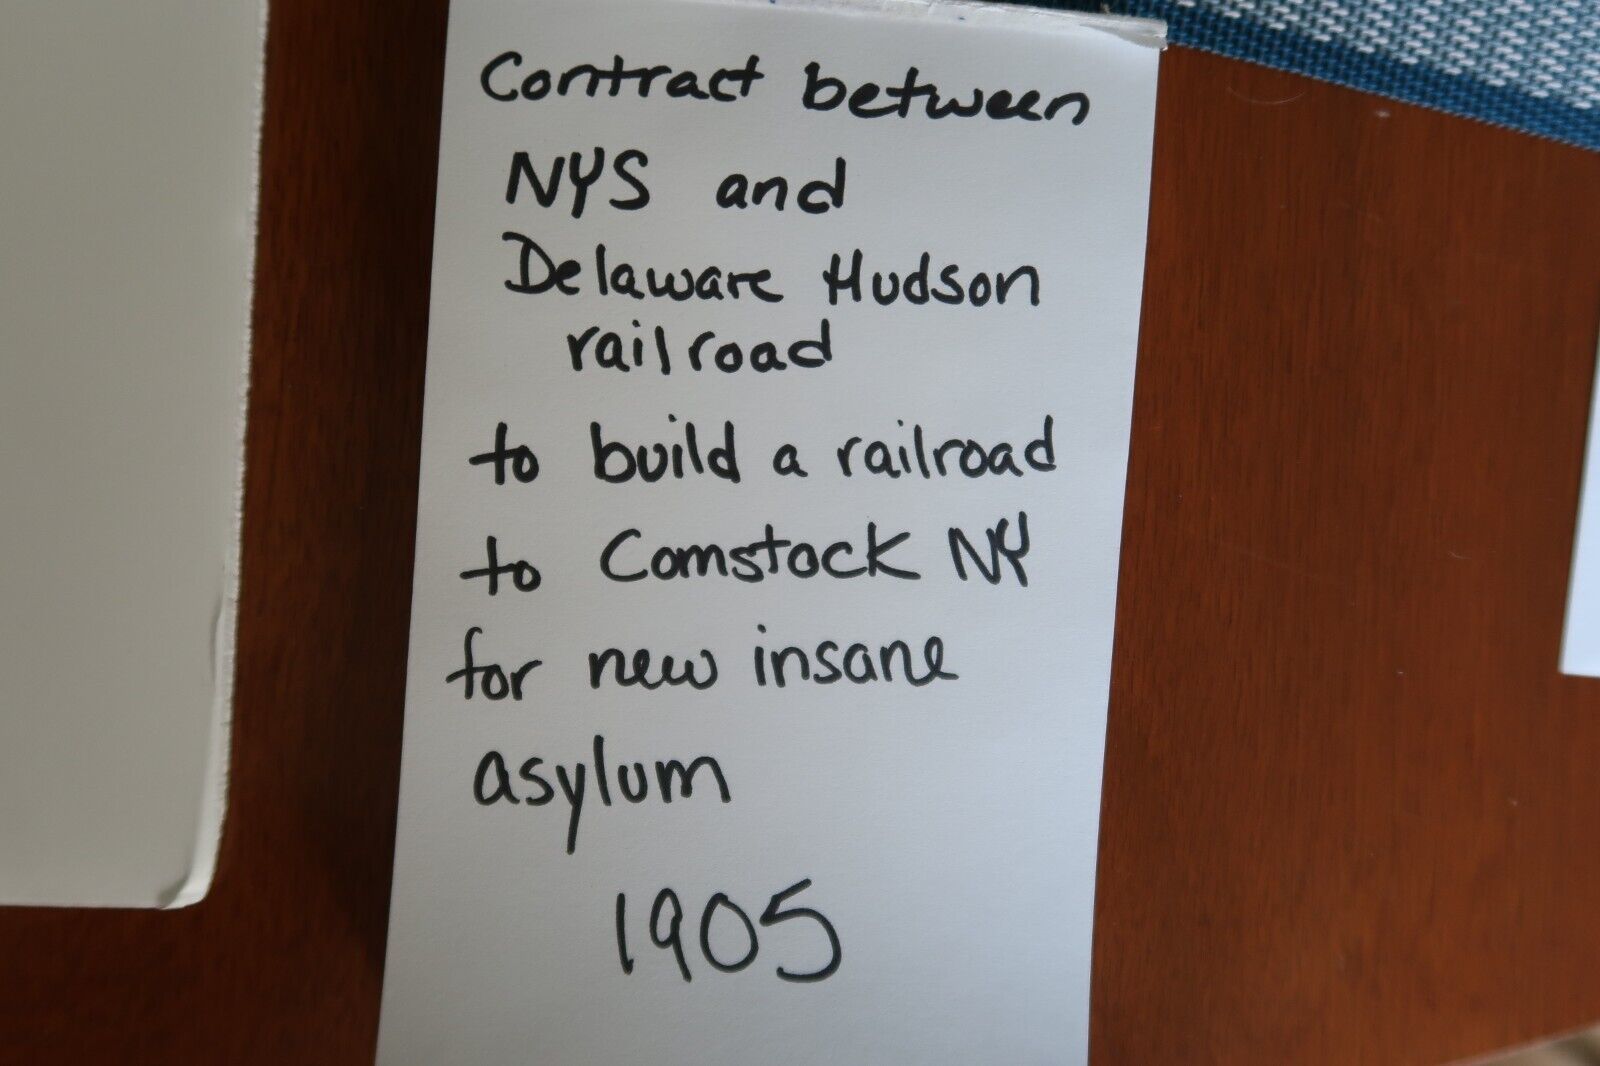 Contract between
NYS and
Delaware Hudson
railroad
to build a railroad
to Comstock NY
for new insane
asylum
1905